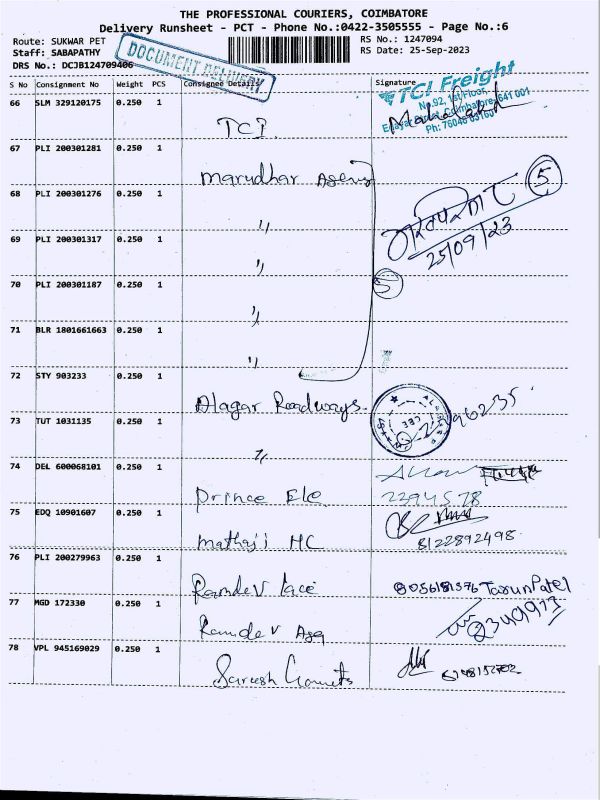 THE PROFESSIONAL COURIERS, COIMBATORE
Delivery Runsheet - PCT - Phone No.:0422-3505555 - Page No.:6
Route: SUKWAR PET
RS No.: 1247094
Staff: SABAPATHY
RS Date: 25-Sep-2023
DRS No.: DCJB124709406
DOCUMENT DELIVERY
S No Consignment No Weight PCS Consignee Details Signature
TCI Freight
No.92, 1st Floor,
Coimbatore-641 001
66 SLM 329120175 0.250 1
TCI
67 PLI 200301281 0.250 1
Marudhar
68 PLI 200301276 0.250 1
"
5
25/09/23
69 PLI 200301317 0.250 1
"
70 PLI 200301187 0.250 1
"
5
71 BLR 1801661663 0.250 1
"
72 STY 903233 0.250 1
Alagar Roadways.
73 TUT 1031135 0.250 1
"
74 DEL 600068101 0.250 1
Prince Ele
75 EDQ 10901607 0.250 1
Mathaji MC
8122892498
76 PLI 200279963 0.250 1
Ramdev lace
8056181576 Tarun Patel
77 MGD 172330 0.250 1
Ramdev
78 VPL 945169029 0.250 1